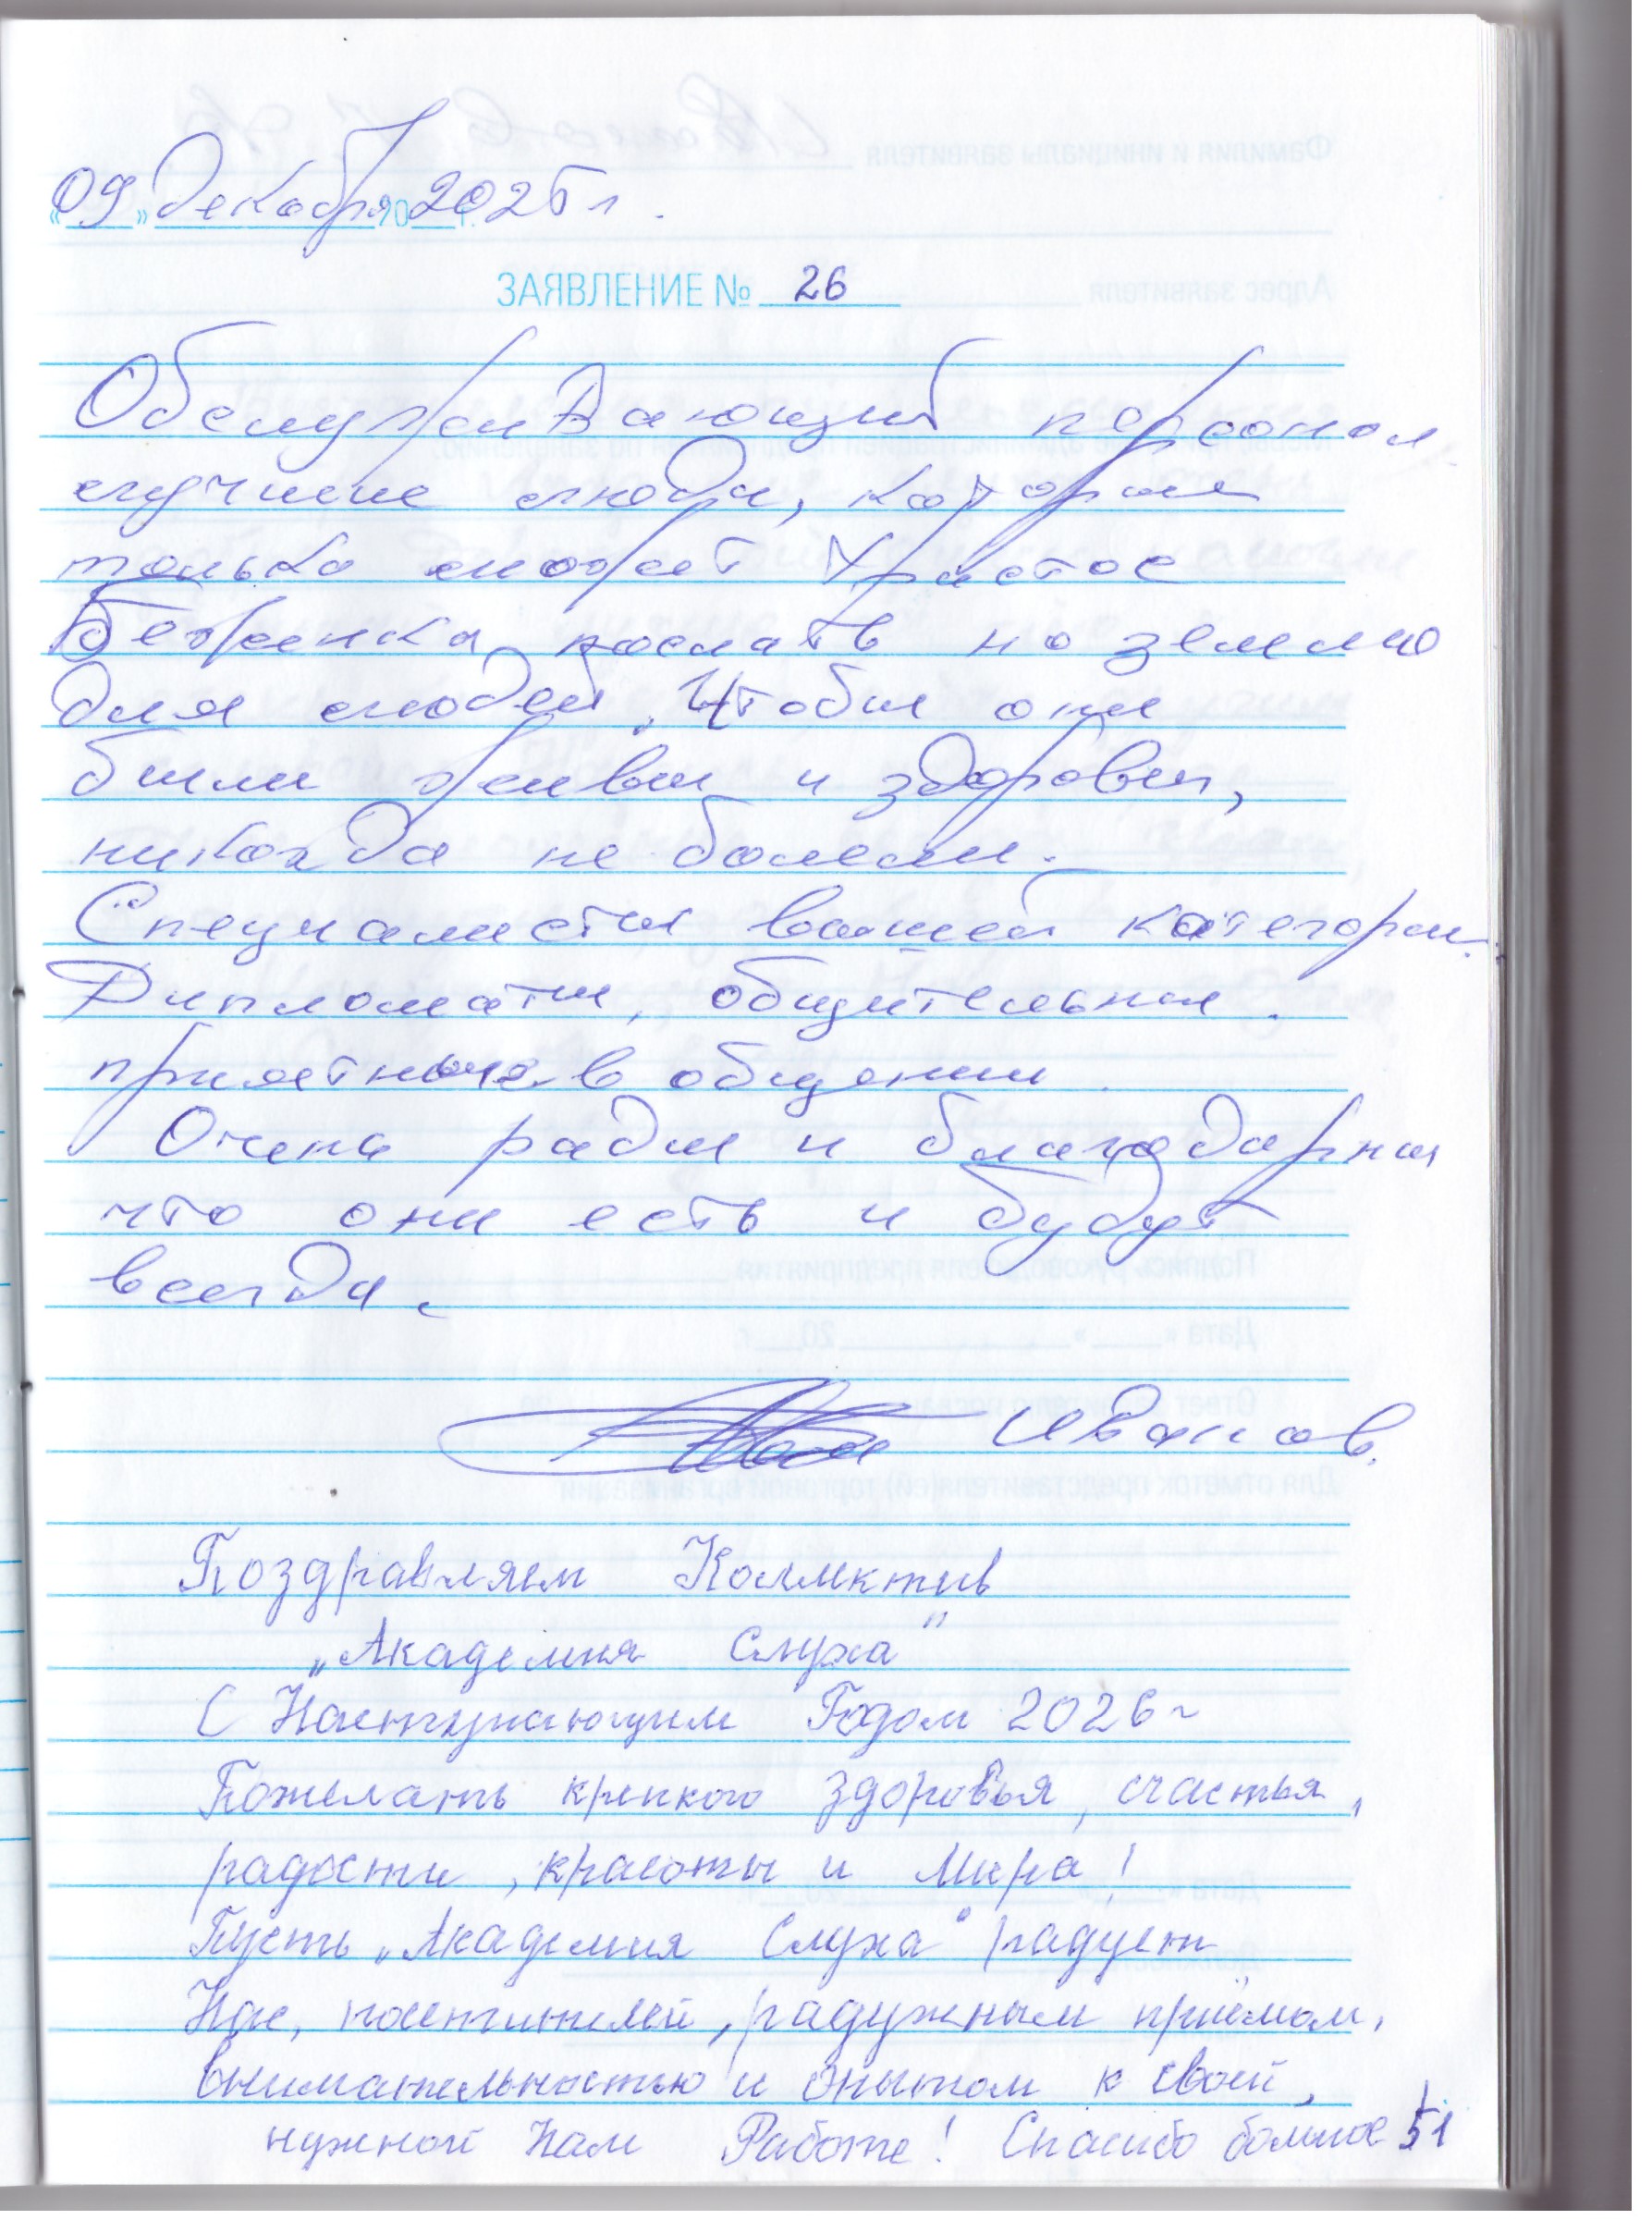 «09» декабря 2025 г.
ЗАЯВЛЕНИЕ № 26
Обслуживающий персонал
лучшие люди, которых
только может Христос
Боженька послать на землю
для людей. Чтобы они
были живы и здоровы,
никогда не болели.
Специалисты высшей категории.
Дипломаты, общительные.
приятные в общении.
Очень рады и благодарны
что они есть и будут
всегда.
Иванов.
Поздравляем Коллектив
„Академия Слуха"
С Наступающим Годом 2026 г
Пожелать крепкого здоровья, счастья,
радости, красоты и Мира!
Пусть „Академия Слуха" радует
Нас, посетителей, радужным приёмом,
внимательностью и опытом к своей,
нужной Нам Работе! Спасибо большое
51